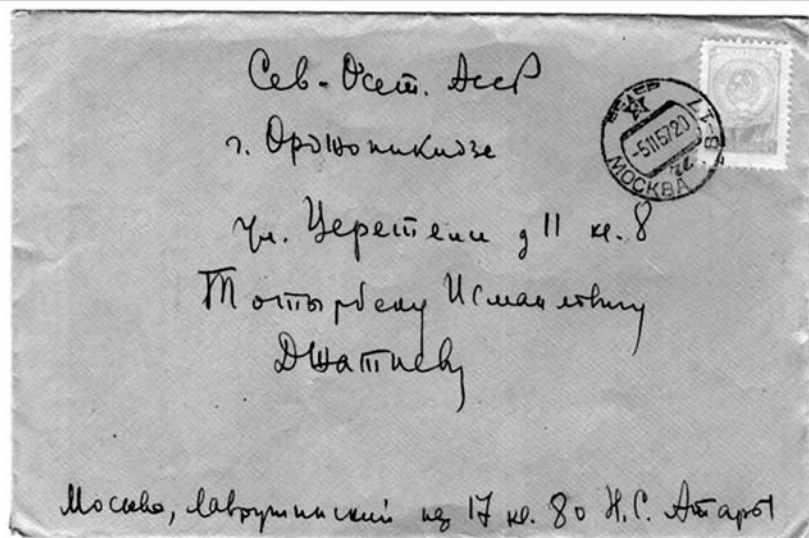 Сев-Осет. АссР
г. Орджоникидзе
ул. Церетели д 11 кв. 8
Тотырбеку Исмаиловичу
Джатиеву
МОСКВА
-5115720
Москва, Лаврушинский пер 17 кв. 80 Н.С. Атаров